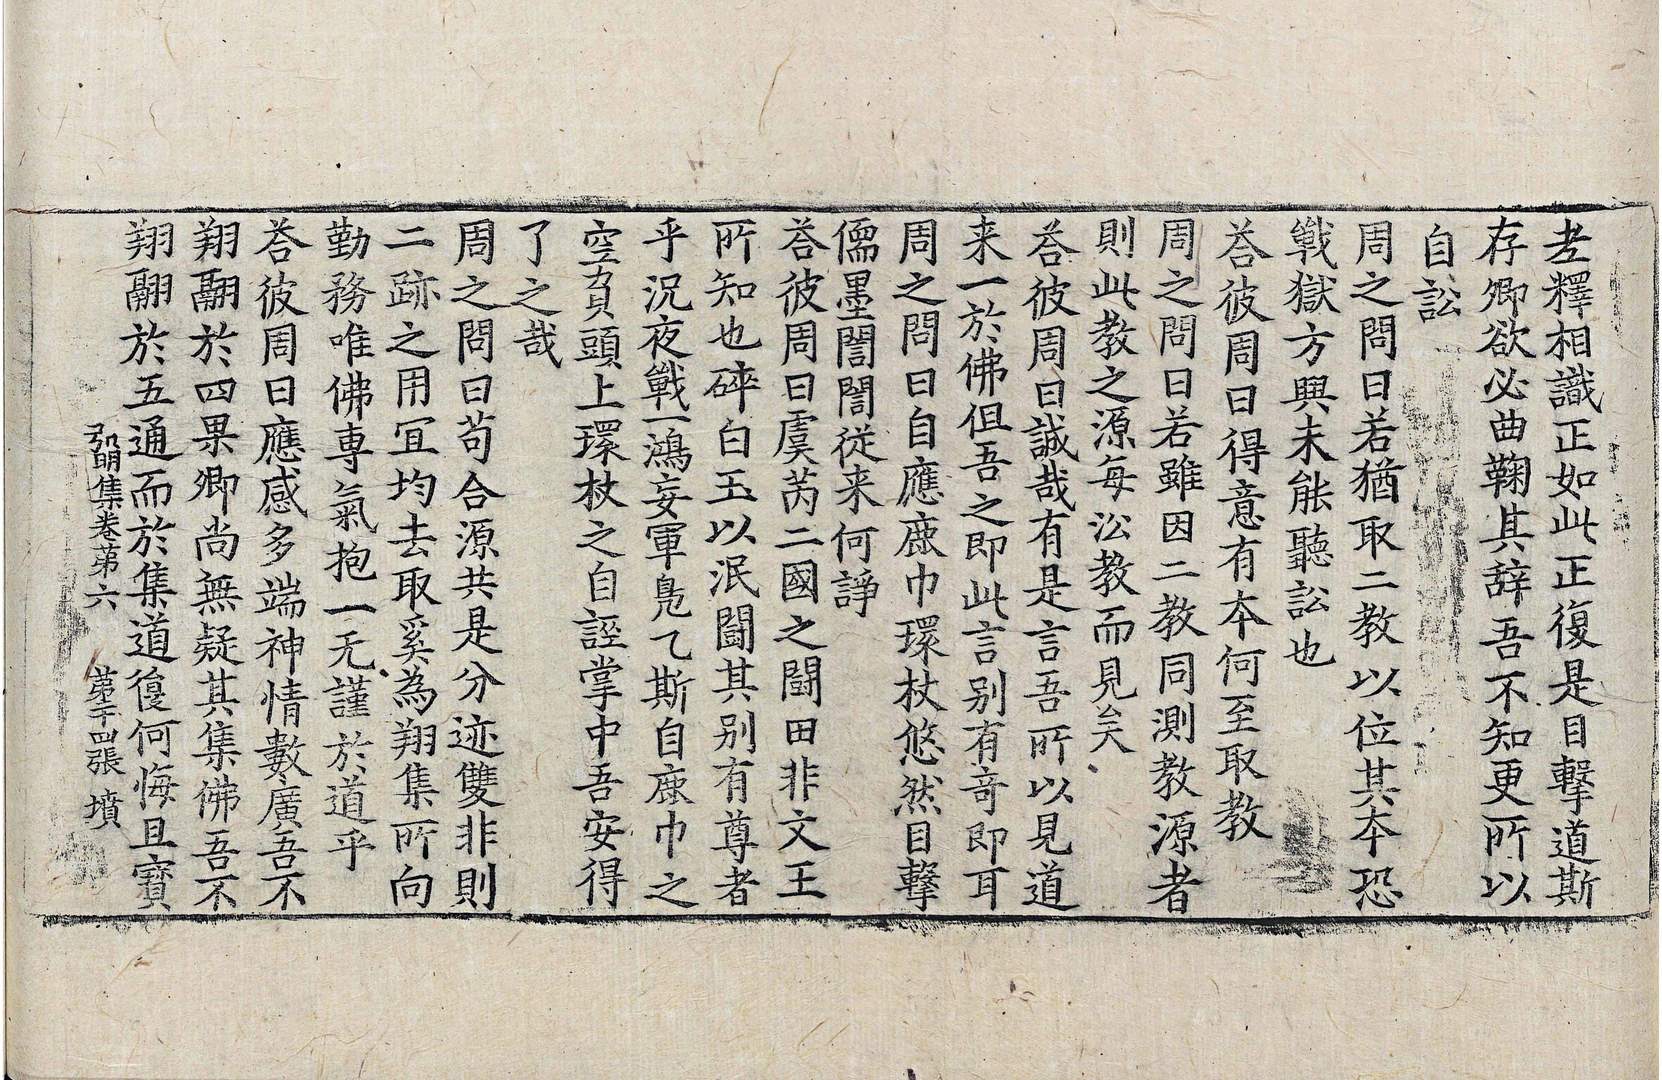 老釋相識正如此正復是目擊道斯
存卿欲必曲鞠其辞吾不知更所以
自訟
周之問曰若猶取二教以位其本恐
戰獄方興未能聽訟也
荅彼周曰得意有本何至取教
周之問曰若雖因二教同測教源者
則此教之源每沿教而見矣
荅彼周曰誠哉有是言吾所以見道
来一於佛但吾之即此言别有奇即耳
周之問曰自應鹿巾環杖悠然目擊
儒墨誾誾従来何諍
荅彼周曰虞芮二國之闘田非文王
所知也碎白玉以泯闘其别有尊者
乎況夜戰一鴻妄軍鳧乙斯自鹿巾之
空負頭上環杖之自誣掌中吾安得
了之哉
周之問曰苟合源共是分迹雙非則
二跡之用宜均去取奚為翔集所向
勤務唯佛專氣抱一无謹於道乎
荅彼周曰應感多端神情數廣吾不
翔翮於四果卿尚無疑其集佛吾不
翔翮於五通而於集道復何悔且寳
弘明集卷第六　第十四張　墳